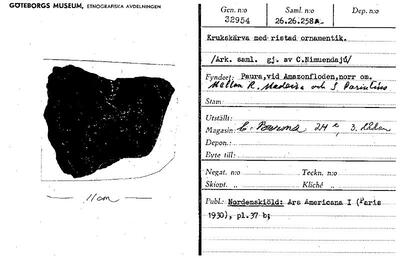 GÖTEBORGS MUSEUM, ETNOGRAFISKA AVDELNINGEN
Gen. n:o Saml. n:o Dep. n:o
32954 26.26.258a
Krukskärva med ristad ornamentik.
/Ark. saml. gj. av C.Nimuendajú/
Fyndort: Paura, vid Amazonfloden, norr om.
Mellan R. Madeira och S Parintins
Stam:
Utställt:
Magasin: 24 3.
Depon.:
Byte till:
Negat. n:o Teckn. n:o
Skiopt. „ Kliché „
Publ.: Nordenskiöld: Ars Americana I (Paris
1930), pl.37 b;
11cm